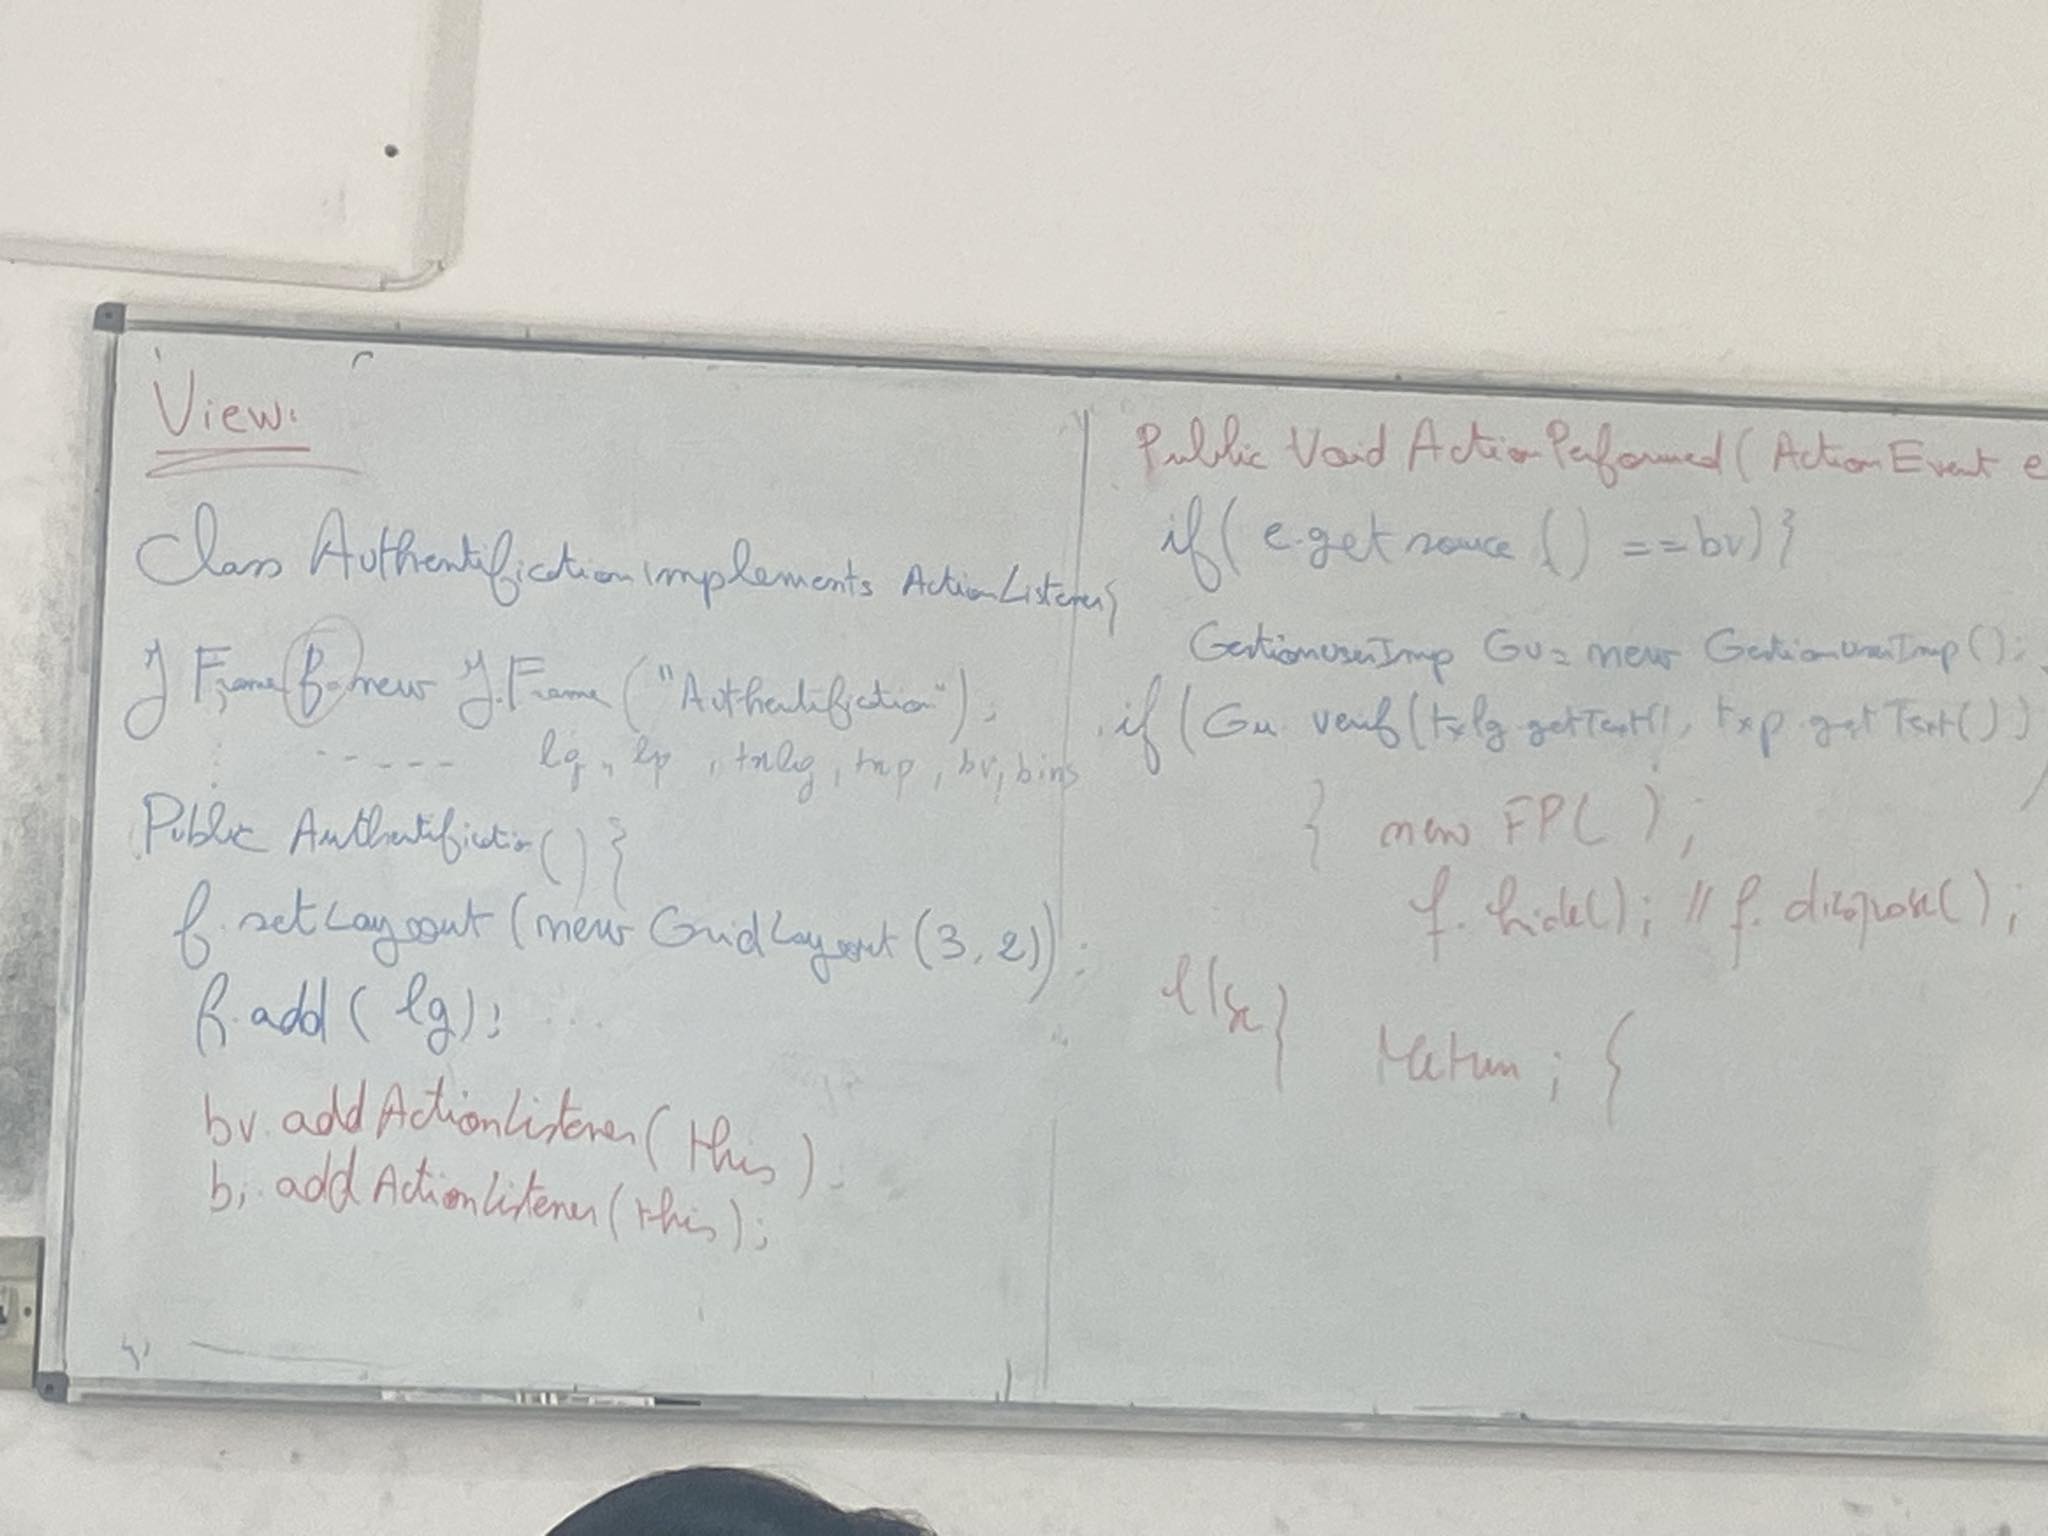 View:
Class Authentifiction implements ActionListener{
JFrame f = new J.Frame ("Authentifiction");
----- lg, lp, txlg, txp, bv, bins
Public Authentifiction() {
f.setLayout (new GridLayout (3, 2));
f.add ( lg); ...
bv. addActionListener( this ).
bi. addActionListener (this);
Public Void ActionPerformed( ActionEvent e
if( e.get source () == bv) }
GestionuserImp Gu = new GestionuserImp();
if (Gu verif (txlg getText(), txp getText())
} new FP( );
f. hide(); // f. dispose();
else } return; {